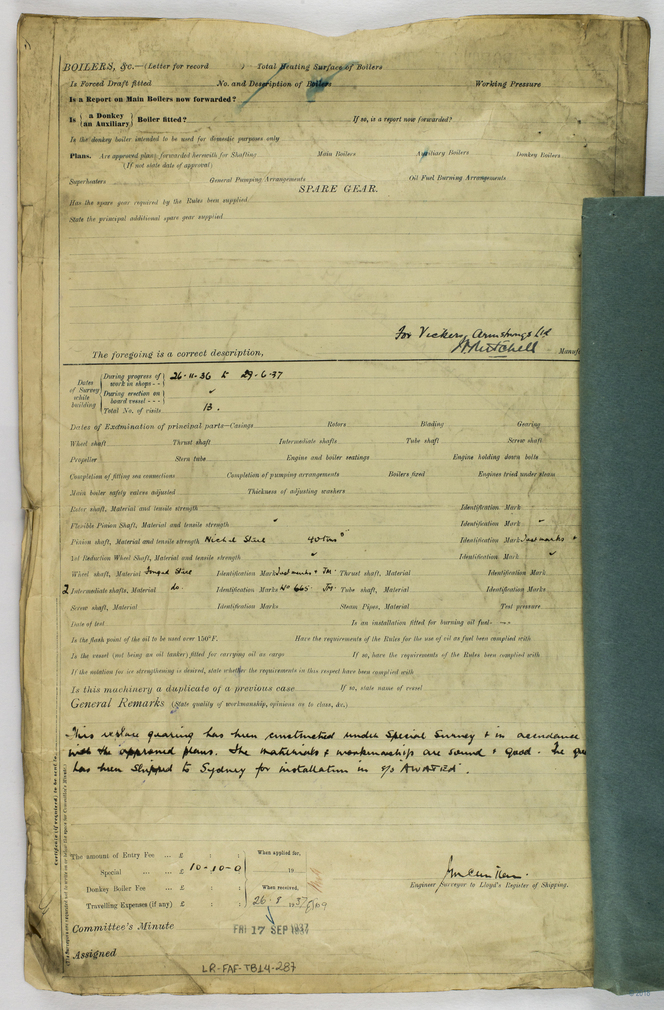 BOILERS, &c.—(Letter for record ) Total Heating Surface of Boilers
Is Forced Draft fitted No. and Description of Boilers Working Pressure
Is a Report on Main Boilers now forwarded?
Is { a Donkey / an Auxiliary } Boiler fitted? If so, is a report now forwarded?
Is the donkey boiler intended to be used for domestic purposes only
Plans. Are approved plans forwarded herewith for Shafting Main Boilers Auxiliary Boilers Donkey Boilers
(If not state date of approval)
Superheaters General Pumping Arrangements Oil Fuel Burning Arrangements
SPARE GEAR.
Has the spare gear required by the Rules been supplied.
State the principal additional spare gear supplied
For Vickers Armstrongs Ltd
The foregoing is a correct description, Mitchell Manuf
Dates of Survey while building
During progress of work in shops - - 26-11-36 to 29-6-37
During erection on board vessel - - - ✓
Total No. of visits 13.
Dates of Examination of principal parts—Casings Rotors Blading Gearing
Wheel shaft Thrust shaft Intermediate shafts Tube shaft Screw shaft
Propeller Stern tube Engine and boiler seatings Engine holding down bolts
Completion of fitting sea connections Completion of pumping arrangements Boilers fixed Engines tried under steam
Main boiler safety valves adjusted Thickness of adjusting washers
Rotor shaft, Material and tensile strength Identification Mark
Flexible Pinion Shaft, Material and tensile strength ✓ Identification Mark ✓
Pinion shaft, Material and tensile strength Nickel Steel 40 tons Identification Mark Test marks +
1st Reduction Wheel Shaft, Material and tensile strength ✓ Identification Mark ✓
Wheel shaft, Material Forged Steel Identification Mark Test marks + Thrust shaft, Material Identification Mark
2 Intermediate shafts, Material do. Identification Marks No 665 Tube shaft, Material Identification Marks
Screw shaft, Material Identification Marks Steam Pipes, Material Test pressure
Date of test Is an installation fitted for burning oil fuel
Is the flash point of the oil to be used over 150°F. Have the requirements of the Rules for the use of oil as fuel been complied with
Is the vessel (not being an oil tanker) fitted for carrying oil as cargo If so, have the requirements of the Rules been complied with
If the notation for ice strengthening is desired, state whether the requirements in this respect have been complied with
Is this machinery a duplicate of a previous case If so, state name of vessel
General Remarks (State quality of workmanship, opinions as to class, &c.)
This replace gearing has been constructed under Special Survey & in accordance
with the approved plans. The materials & workmanship are sound & good. The
has been shipped to Sydney for installation in s/s "AWATEA".
The amount of Entry Fee ... £ : : When applied for,
Special ... ... £ 10-10-0 19
Donkey Boiler Fee ... £ : : When received,
Travelling Expenses (if any) £ : : 26-8 1937
Engineer Surveyor to Lloyd's Register of Shipping.
Committee's Minute FRI 17 SEP 1937
Assigned
LR-FAF-TB14-287